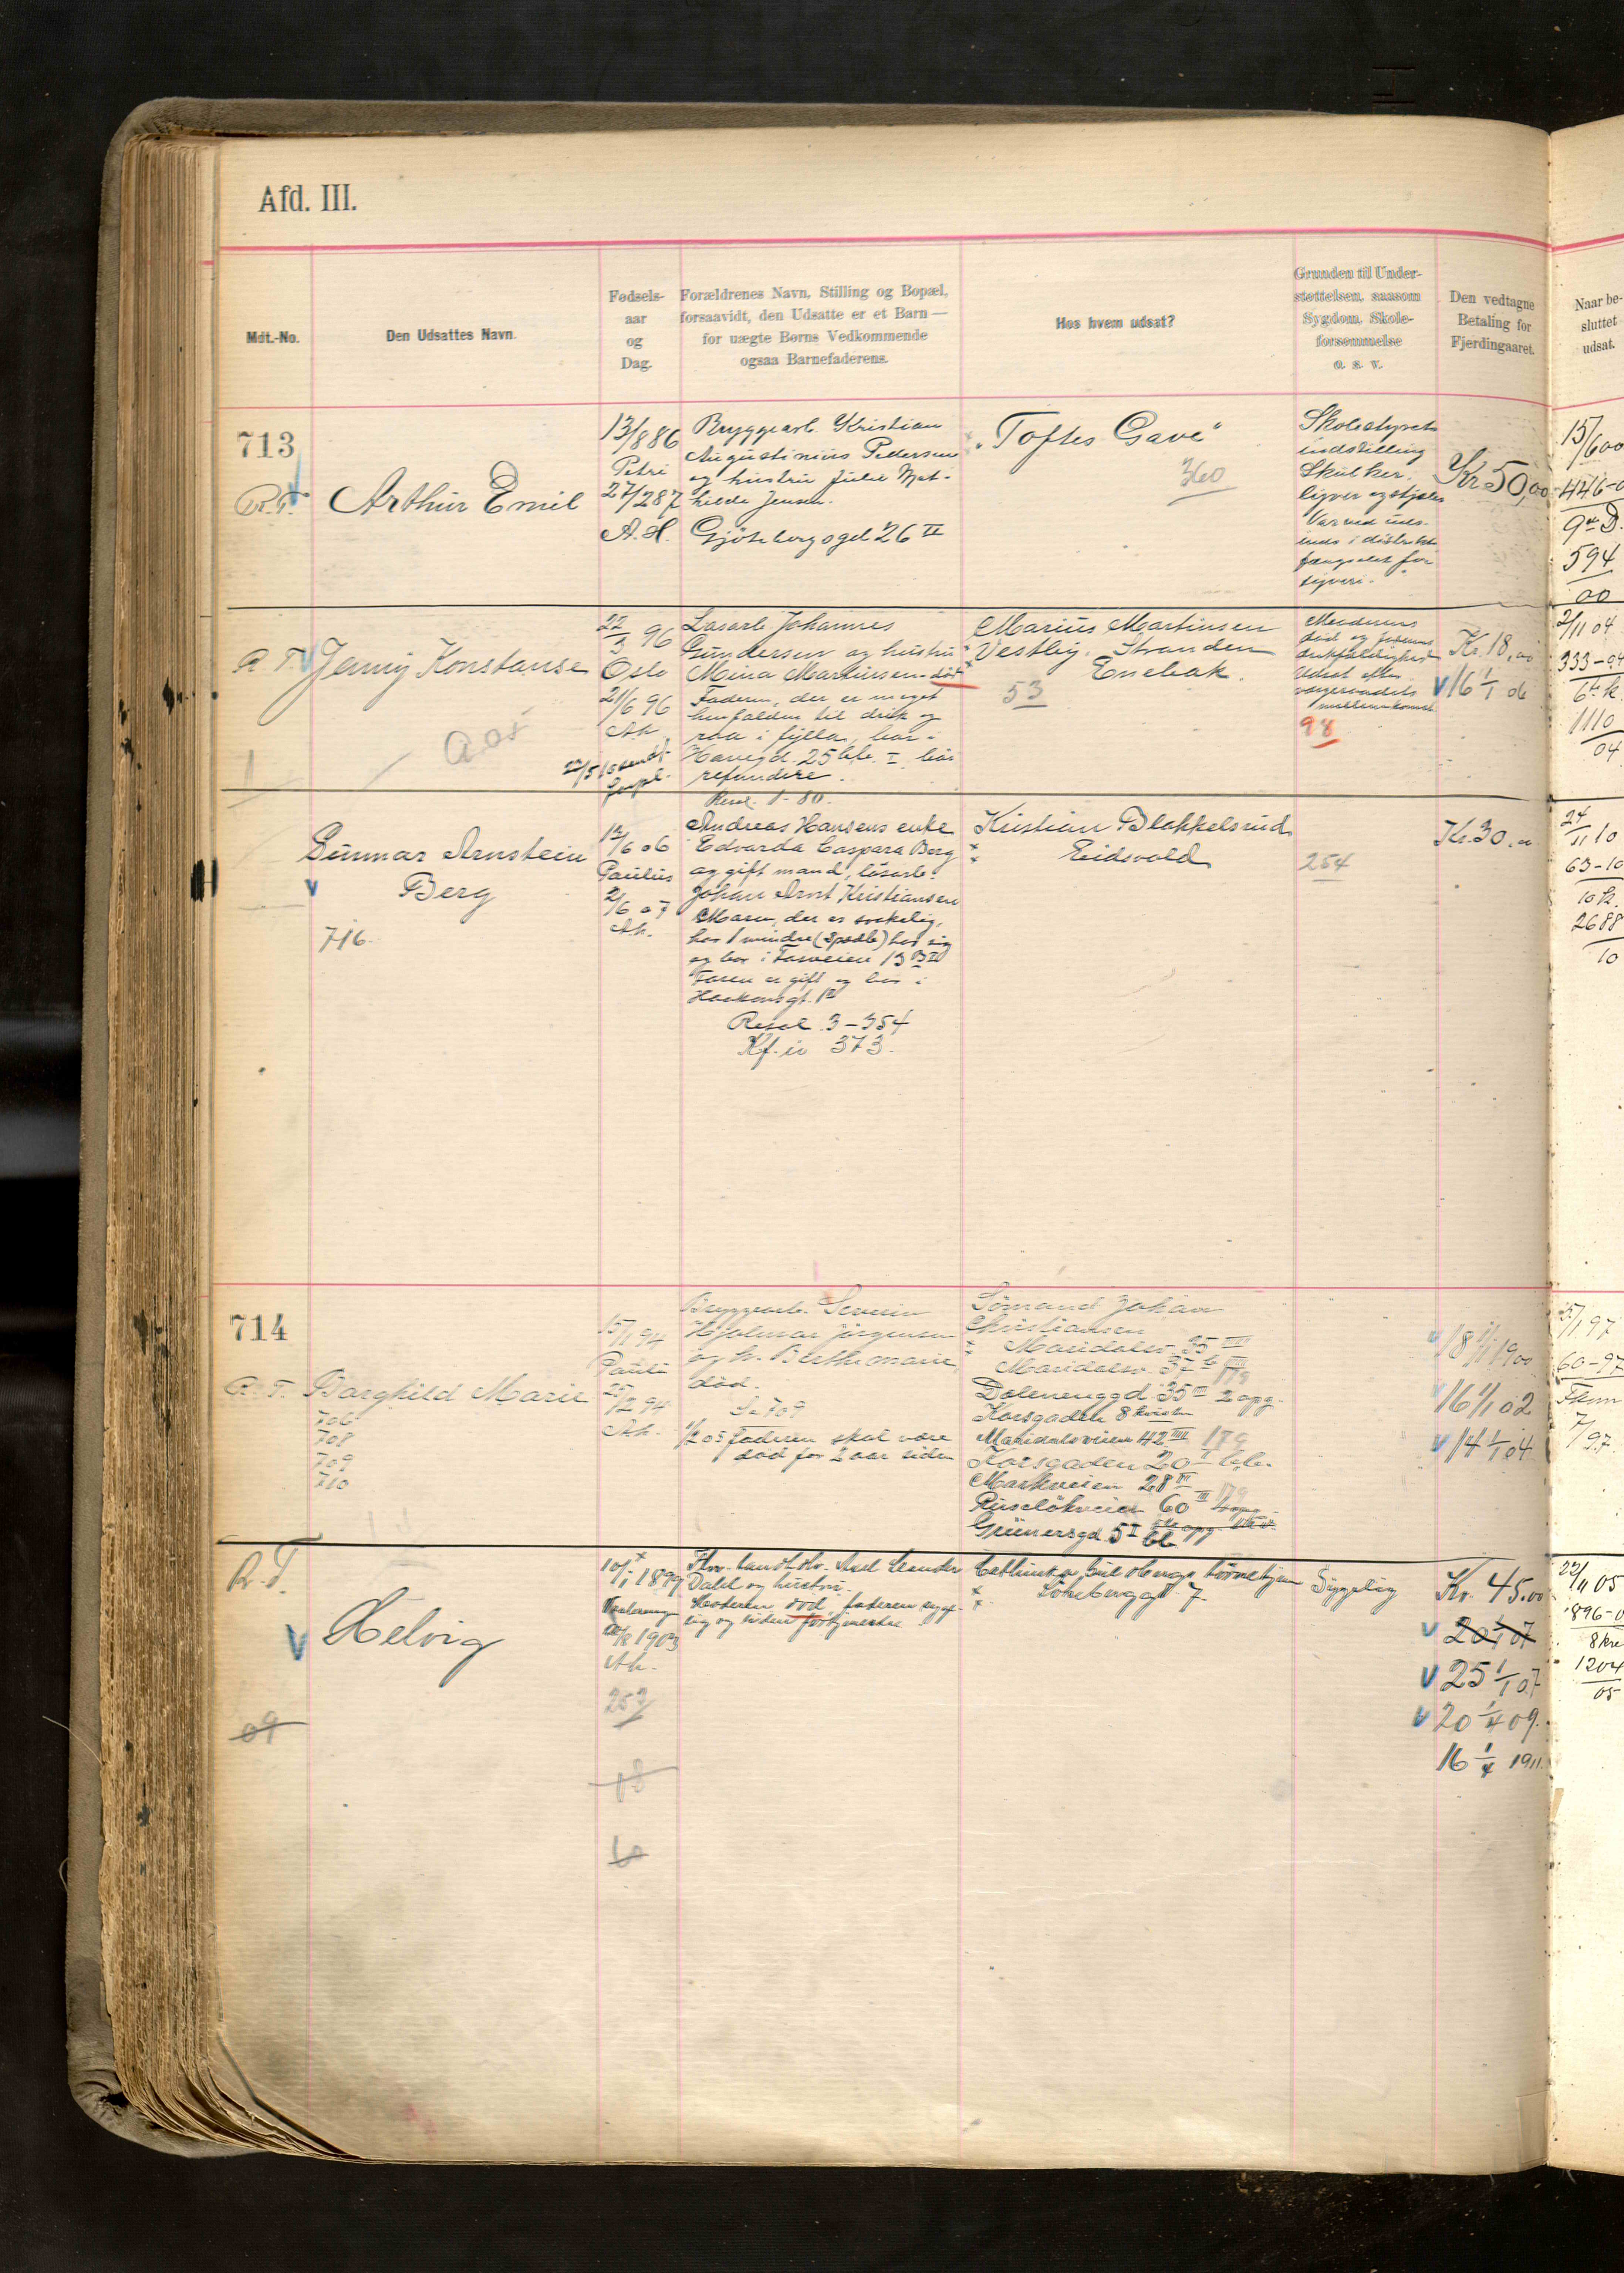 Afd. III.
Mdt.-No.
Den Udsattes Navn.
Fødsels-
aar
og
Dag.
Forældrenes Navn, Stilling og Bopæl,
forsaavidt, den Udsatte er et Barn —
for uægte Børns Vedkommende
ogsaa Barnefaderens.
Hos hvem udsat?
Grunden til Under-
støttelsen, saasom
Sygdom, Skole-
forsømmelse
o. s. v.
Den vedtagne
Betaling for
Fjerdingaaret.
Naar be-
sluttet
udsat.
713
R.T.
Arthur Emil
13/8 86
Petri
27/2 87
A. H.
Bryggearb. Kristian
Augustinius Pedersen
og hustru Julie Mat-
hilde Jensen.
Gjøteborggd 26 II
"Toftes Gave"
360
Skolestyrets
indstilling
Skulker,
lyver og stjæler
Var ved uds.
i distrikts
fængslet for
tyveri.
Kr 50,00
15/6 00
446-0
9de D.
594
00
R. T.
Jenny Konstanse
22/3 96
Oslo
21/6 96
Ak.
Løsarb Johannes
Gundersen og hustru
Mina Martinsen død
Faderen, der er meget
henfalden til drik og
raa i fylla, bor i
Havegd. 25 I, bør
refundere.
Marius Martinsen
Vestby. Stranden
Enebak.
53
Moderens
død og faderens
drikfældighed
Udsat efter
værgeraadets
mellemkomst
98
Kr. 18,00
16 1/1 06
2/11 04
333-04
6te k.
1110
04
Resol. 1-80.
Gunnar Arnstein
Berg
716.
12/6 06
Paulus
2/6 07
Ak.
Andreas Hansens enke
Edvarda Caspara Berg
og gift mand, løsarb.
Johan Arnt Kristiansen
Moren, der er svækelig,
har 1 mindre (spædb) hos sig
og bor i 13 B II
Faren er gift og bor i
Haakonsgt. 12
Resol. 3-354
Kf. iv 373.
Kristian Blakkelsrud
Eidsvold
254
Kr. 30.00
24/11 10
63-10
10 k.
2688
10
714
R. T.
Borghild Marie
706
708
709
710
15/1 94
Pauli
25/2 94
Ak.
Bryggearb. Severin
Hjalmar Jørgensen
og h. Berthe Marie,
død.
Se 709
1/2 05 faderen skal være
død for 2 aar siden
Sømand Johan
Christiansen
Maridalsv 35 III
Maridalsv. 37 b III
179
Dælenenggd. 35 III 2 opg.
Korsgaden 8
Maridalsveien 42 III 179
Korsgaden 20 I
Markveien 28 III
179
Ruseløkveien 60 III
Grünersgd 5 I
18 1/1 1900
16 1/1 02
14 1/1 04
15/1 97
60-97
7/97
R. T.
Helvig
09
10/1 1899
1903
Ak.
252
Dahl og hustru.
Moderen død, faderen syge-
lig og uden fortjeneste
7
Sygelig
Kr. 45.00
20 1/1 07
25 1/1 07
20 1/4 09.
16 1/4 1911.
22/11 05
896-0
1204
05